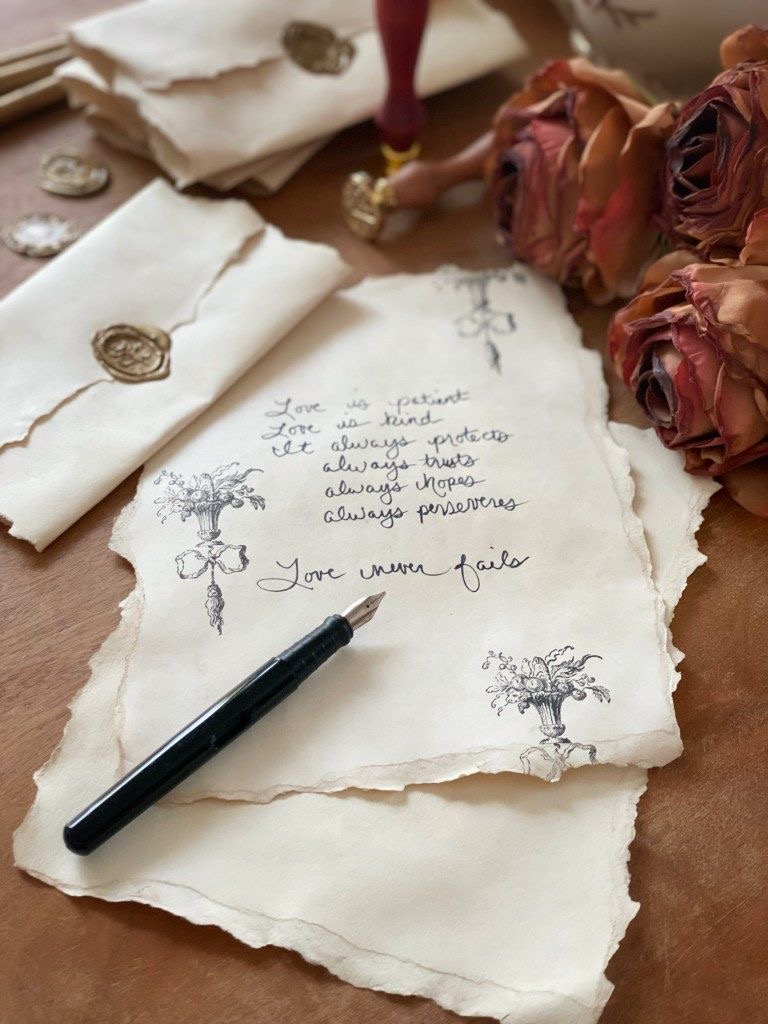 Love is patient
Love is kind
It always protects
always trusts
always hopes
always perseveres
Love never fails